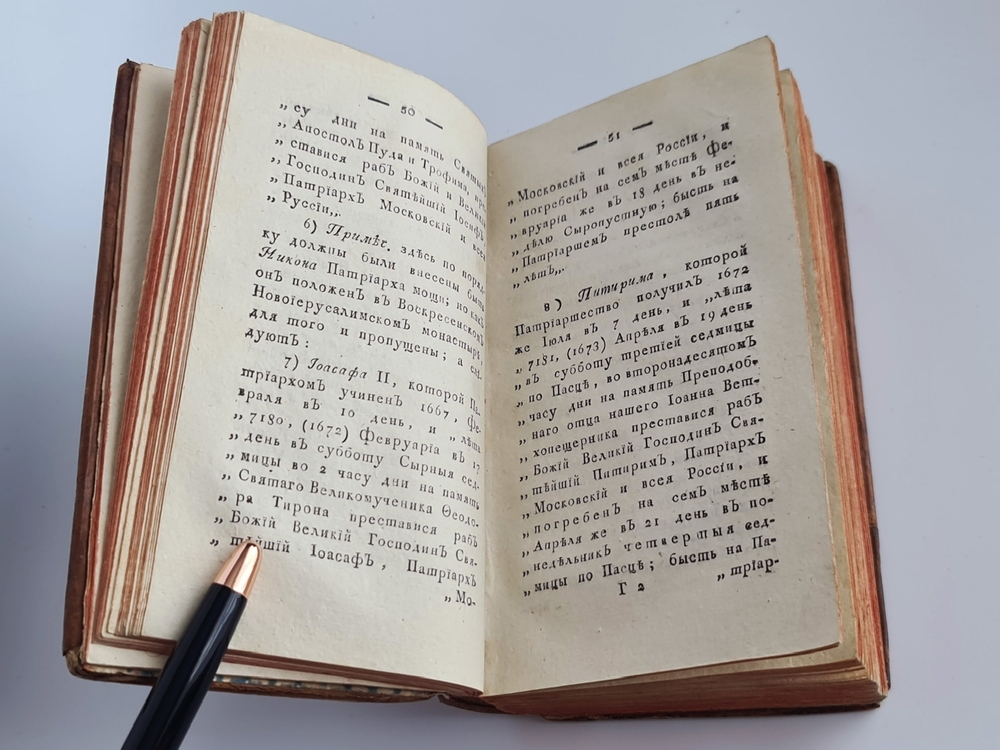 — 50 —
„ су дни на память Святыхъ
„ Апостолъ Пуда и Трофима, пре-
„ ставися рабъ Божїй и Великїй
„ Господинъ Святѣйшїй Іосифъ
„ Патрїархъ Московскїй и всея
„ Руссїи„.
6) Примѣч. здѣсь по поряд-
ку должны были внесены быть
Никона Патрїарха мощи; но какъ
онъ положенъ въ Воскресенскомъ
Новоїерусалимскомъ монастырѣ,
для того и пропущены; а слѣ-
дуютъ:
7) Іоасафа II, которой Па-
трїархомъ учиненъ 1667, Фе-
враля въ 10 день, и „ лѣта
„ 7180, (1672) Февруарїа въ 17
„ день въ субботу Сырныя сед-
„ мицы во 2 часу дни на память
„ Святаго Великомученика Ѳеодо-
„ ра Тирона преставися рабъ
„ Божїй Великїй Господинъ Свя-
„ тѣйшїй Іоасафъ, Патрїархъ
„ Мо-
— 51 —
„ Московскїй и всея Россїи, и
„ погребенъ на семъ мѣстѣ фе-
„ вруарїа же въ 18 день въ не-
„ дѣлю Сыропустную; бысть на
„ Патрїаршемъ престолѣ пять
„ лѣтъ„.
8) Питирима, которой
Патрїаршество получилъ 1672
же Іюля въ 7 день, и „лѣта
„ 7181, (1673) Апрѣля въ 19 день
„ въ субботу третїей седмицы
„ по Пасцѣ, во второнадесятомъ
„ часу дни на память Преподоб-
„ наго отца нашего Іоанна Вет-
„ хопещерника преставися рабъ
„ Божїй Великїй Господинъ Свя-
„ тѣйшїй Питиримъ, Патрїархъ
„ Московскїй и всея Россїи, и
„ погребенъ на семъ мѣстѣ
„ Апрѣля же въ 21 день въ по-
„ недѣльникъ четвертыя сед-
„ мицы по Пасцѣ; бысть на Па-
Г 2 „ трїар-